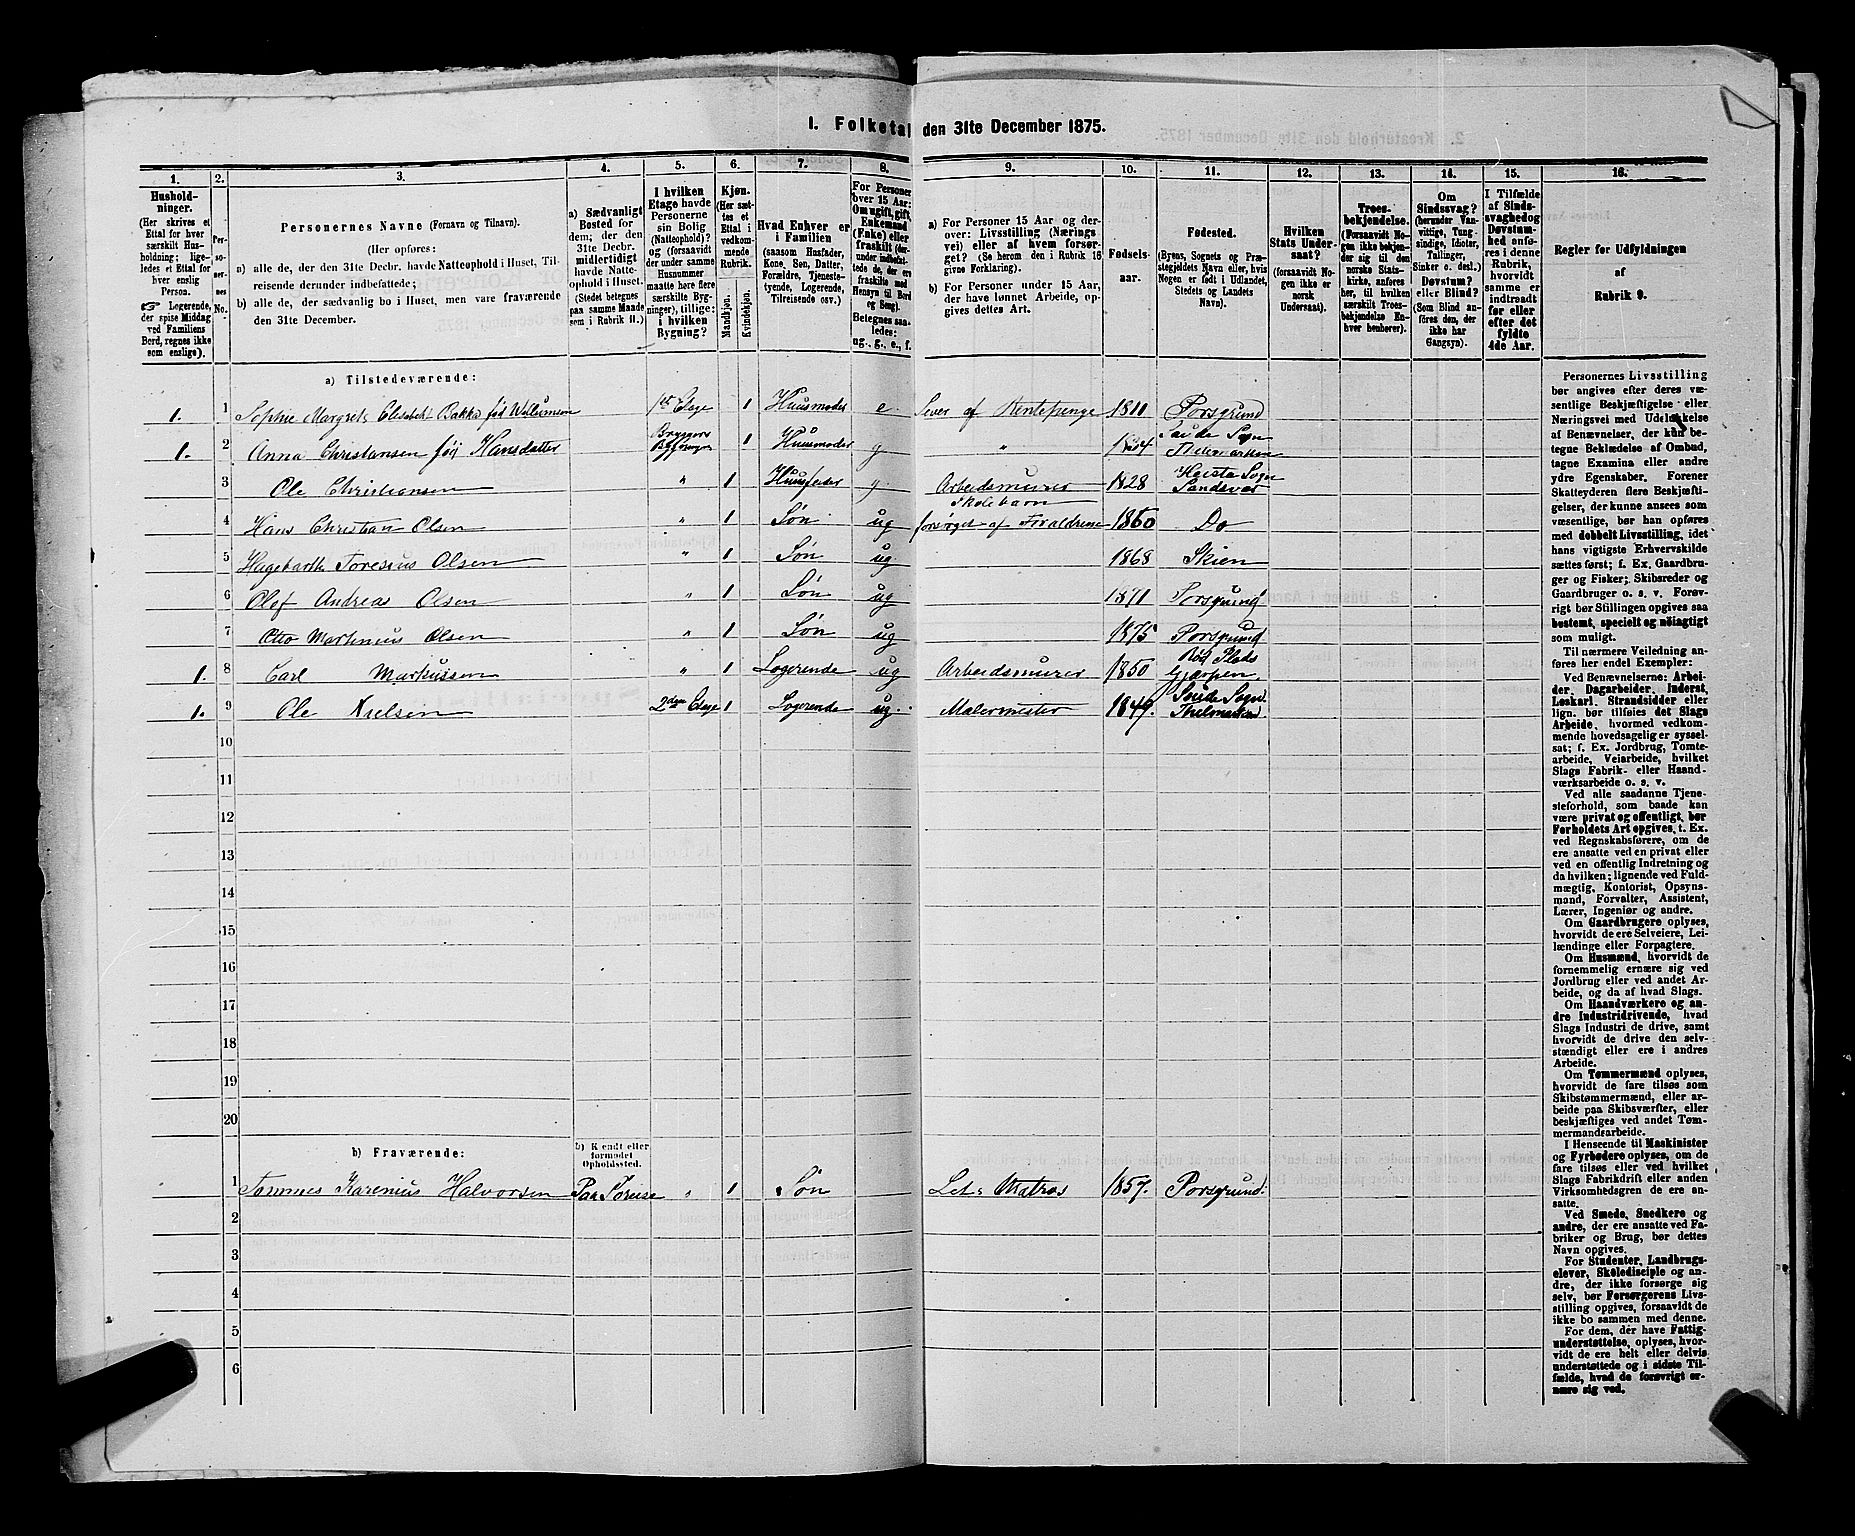 I. Folketal den 31te December 1875.
1.
2.
3.
4.
5.
6.
7.
8.
9.
10.
11.
12.
13.
14.
15.
16.
Hushold-
ninger.
(Her skrives et
Ettal for hver
særskilt Hus-
holdning; lige-
ledes et Ettal for
hver enslig
Person.
☞ Logerende,
der spise Middag
ved Familiens
Bord, regnes ikke
som enslige).
Per-
so-
ner-
nes
No.
Personernes Navne (Fornavn og Tilnavn).
(Her opføres:
a) alle de, der den 31te Decbr. havde Natteophold i Huset, Til-
reisende derunder indbefattede;
b) alle de, der sædvanlig bo i Huset, men vare fraværende
den 31te December.
a) Sædvanligt
Bosted for
dem; der den
31te Decbr.
midlertidigt
havde Natte-
ophold i Huset.
(Stedet betegnes
paa samme Maade
som i Rubrik 11.)
I hvilken
Etage havde
Personerne
sin Bolig
(Natteophold)?
og (forsaavidt
der under samme
Husnummer
maatte høre flere
særskilte Byg-
ninger), tillige:
i hvilken
Bygning?
Kjøn.
(Her sæt-
tes et
Ettal i
vedkom-
mende
Rubrik.
Mandkjøn.
Kvindekjøn.
Hvad Enhver er
i Familien
(saasom Husfader,
Kone, Søn, Datter,
Forældre, Tjeneste-
tyende, Logerende,
Tilreisende osv.)
For Personer
over 15 Aar:
Om ugift, gift,
Enkemand
(Enke) eller
fraskilt (der-
under indbefat-
tede de, der ere
fraskilte med
Hensyn til Bord
og Seng).
Betegnes saa-
ledes:
ug., g., e., f.
a) For Personer 15 Aar og der-
over: Livsstilling (Nærings
vei) eller af hvem forsør-
get? (Se herom den i Rubrik 16
givne Forklaring).
b) For Personer under 15 Aar,
der have lønnet Arbeide, op-
gives dettes Art.
Fødsels-
aar.
Fødested.
(Byens, Sognets og Præ-
stegjeldets Navn eller, hvis
Nogen er født i Udlandet,
Stedets og Landets
Navn).
Hvilken
Stats Under-
saat?
(forsaavidt No-
gen ikke er
norsk
Undersaat).
Troes-
bekjendelse.
(Forsaavidt No-
gen ikke bekjen-
der sig til den
norske Stats-
kirke, anføres
her, til hvilken
særskilt Troes-
bekjendelse En-
hver henhører).
Om
Sindssvag?
(herunder Van-
vittige, Tung-
sindige, Idioter,
Tullinger,
Sinker o. desl.)
Døvstum?
eller Blind?
(Som Blind an-
føres den, der
ikke har
Gangsyn).
I Tilfælde
af Sinds-
svaghed og
Døvstum-
hed anfø-
res i denne
Rubrik,
hvorvidt
samme er
indtraadt
før eller
efter det
fyldte
4de Aar.
Regler for Udfyldningen
af
Rubrik 9.
a) Tilstedeværende:
1. 1 Sophie Margrete Elisabeth Bakka fød Wellumsen 1st Etage 1 Huusmoder e Lever af Rentepenge 1811 Porsgrund
1. 2 Anna Christiansen fød Hansdatter Bryggers Bygningen 1 Huusmoder g " 1834 Saude Sogn Thelemarken
3 Ole Christiansen " 1 Huusfader g Arbeidsmurer 1828 Hersta Sogn Sandsvær
4 Hans Christian Olsen " 1 Søn ug Skolebarn forsørget af Forældrene 1860 Do
5 Hagebarth Toresius Olsen " 1 Søn ug 1868 Skien
6 Olof Andreas Olsen " 1 Søn ug 1871 Porsgrund
7 Otto Martinius Olsen " 1 Søn ug 1875 Porsgrund
1. 8 Carl Markussen " 1 Logerende ug Arbeidsmurer 1850 Plads Gjerpen
1. 9 Ole Nielsen 2den Etage 1 Logerende ug. Malermester 1849. Saude Sogn Thelemarken
10
11
12
13
14
15
16
17
18
19
20
b) Fraværende:
b) Kjendt eller
formodet
Opholdssted.
1 Tommes Karenius Halvorsen Paa " 1 Søn Let. Matros 1857. Porsgrund.
2
3
4
5
6
Personernes Livsstilling
bør angives efter deres væ-
sentlige Beskjæftigelse eller
Næringsvei med Udelukkelse
af Benævnelser, der kun be-
tegne Beklædelse af Ombud,
tagne Examina eller andre
ydre Egenskaber. Forener
Skatteyderen flere Beskjæfti-
gelser, der kunne ansees som
væsentlige, bør han opføres
med dobbelt Livsstilling, idet
hans vigtigste Erhvervskilde
sættes først; f. Ex. Gaardbru-
ger og Fisker; Skibsreder og
Gaardbruger o. s. v. Forøv-
rigt bør Stillingen opgives saa
bestemt, specielt og nøiagtigt
som muligt.
Til nærmere Veiledning an-
føres her endel Exempler:
Ved Benævnelserne: Arbei-
der, Dagarbeider, Inderst,
Løskarl, Strandsidder eller
lign. bør tilføies det Slags
Arbeide, hvormed vedkom-
mende hovedsagelig er syssel-
sat; f. Ex. Jordbrug, Tomte-
arbeide, Veiarbeide, hvilket
Slags Fabrik- eller Haand-
værksarbeide o. s. v.
Ved alle saadanne Tjene-
steforhold, som baade kan
være privat og offentligt, bør
Forholdets Art opgives, t. Ex.
ved Regnskabsførere, om de
ere ansatte ved en privat eller
ved en offentlig Indretning og
da hvilken; lignende ved Fuld-
mægtig, Kontorist, Opsyns-
mand, Forvalter, Assistent,
Lærer, Ingeniør og andre.
Om Gaardbrugere oplyses,
hvorvidt de ere Selveiere, Lei-
lændinge eller Forpagtere.
Om Husmænd, hvorvidt de
fornemmelig ernære sig ved
Jordbrug eller ved andet Ar-
beide, og da af hvad Slags.
Om Haandværkere og an-
dre Industridrivende, hvad
Slags Industri de drive, samt
hvorvidt de drive den selv-
stændigt eller ere i andres
Arbeide.
Om Tømmermænd oplyses,
hvorvidt de fare tilsøs som
Skibstømmermænd, eller ar-
beide paa Skibsværfter, eller
beskjæftiges ved andet Tøm-
mermandsarbeide.
I Henseende til Maskinister
og Fyrbødere oplyses, om de
fare tilsøs eller ved hvilket
Slags Fabrikdrift eller anden
Virksomhedsgren de ere an-
satte.
Ved Smede, Snedkere og
andre, der ere ansatte ved Fa-
briker og Brug, bør dettes
Navn opgives.
For Studenter, Landbrugs-
elever, Skoledisciple og an-
dre, der ikke forsørge sig
selv, bør Forsørgerens Livs-
stilling opgives, forsaavidt de
ikke bo sammen med denne.
For dem, der have Fattig-
understøttelse, oplyses, hvor-
vidt de ere helt eller delvis
understøttede og i sidste Til-
fælde, hvad de forøvrigt er-
nære sig ved.